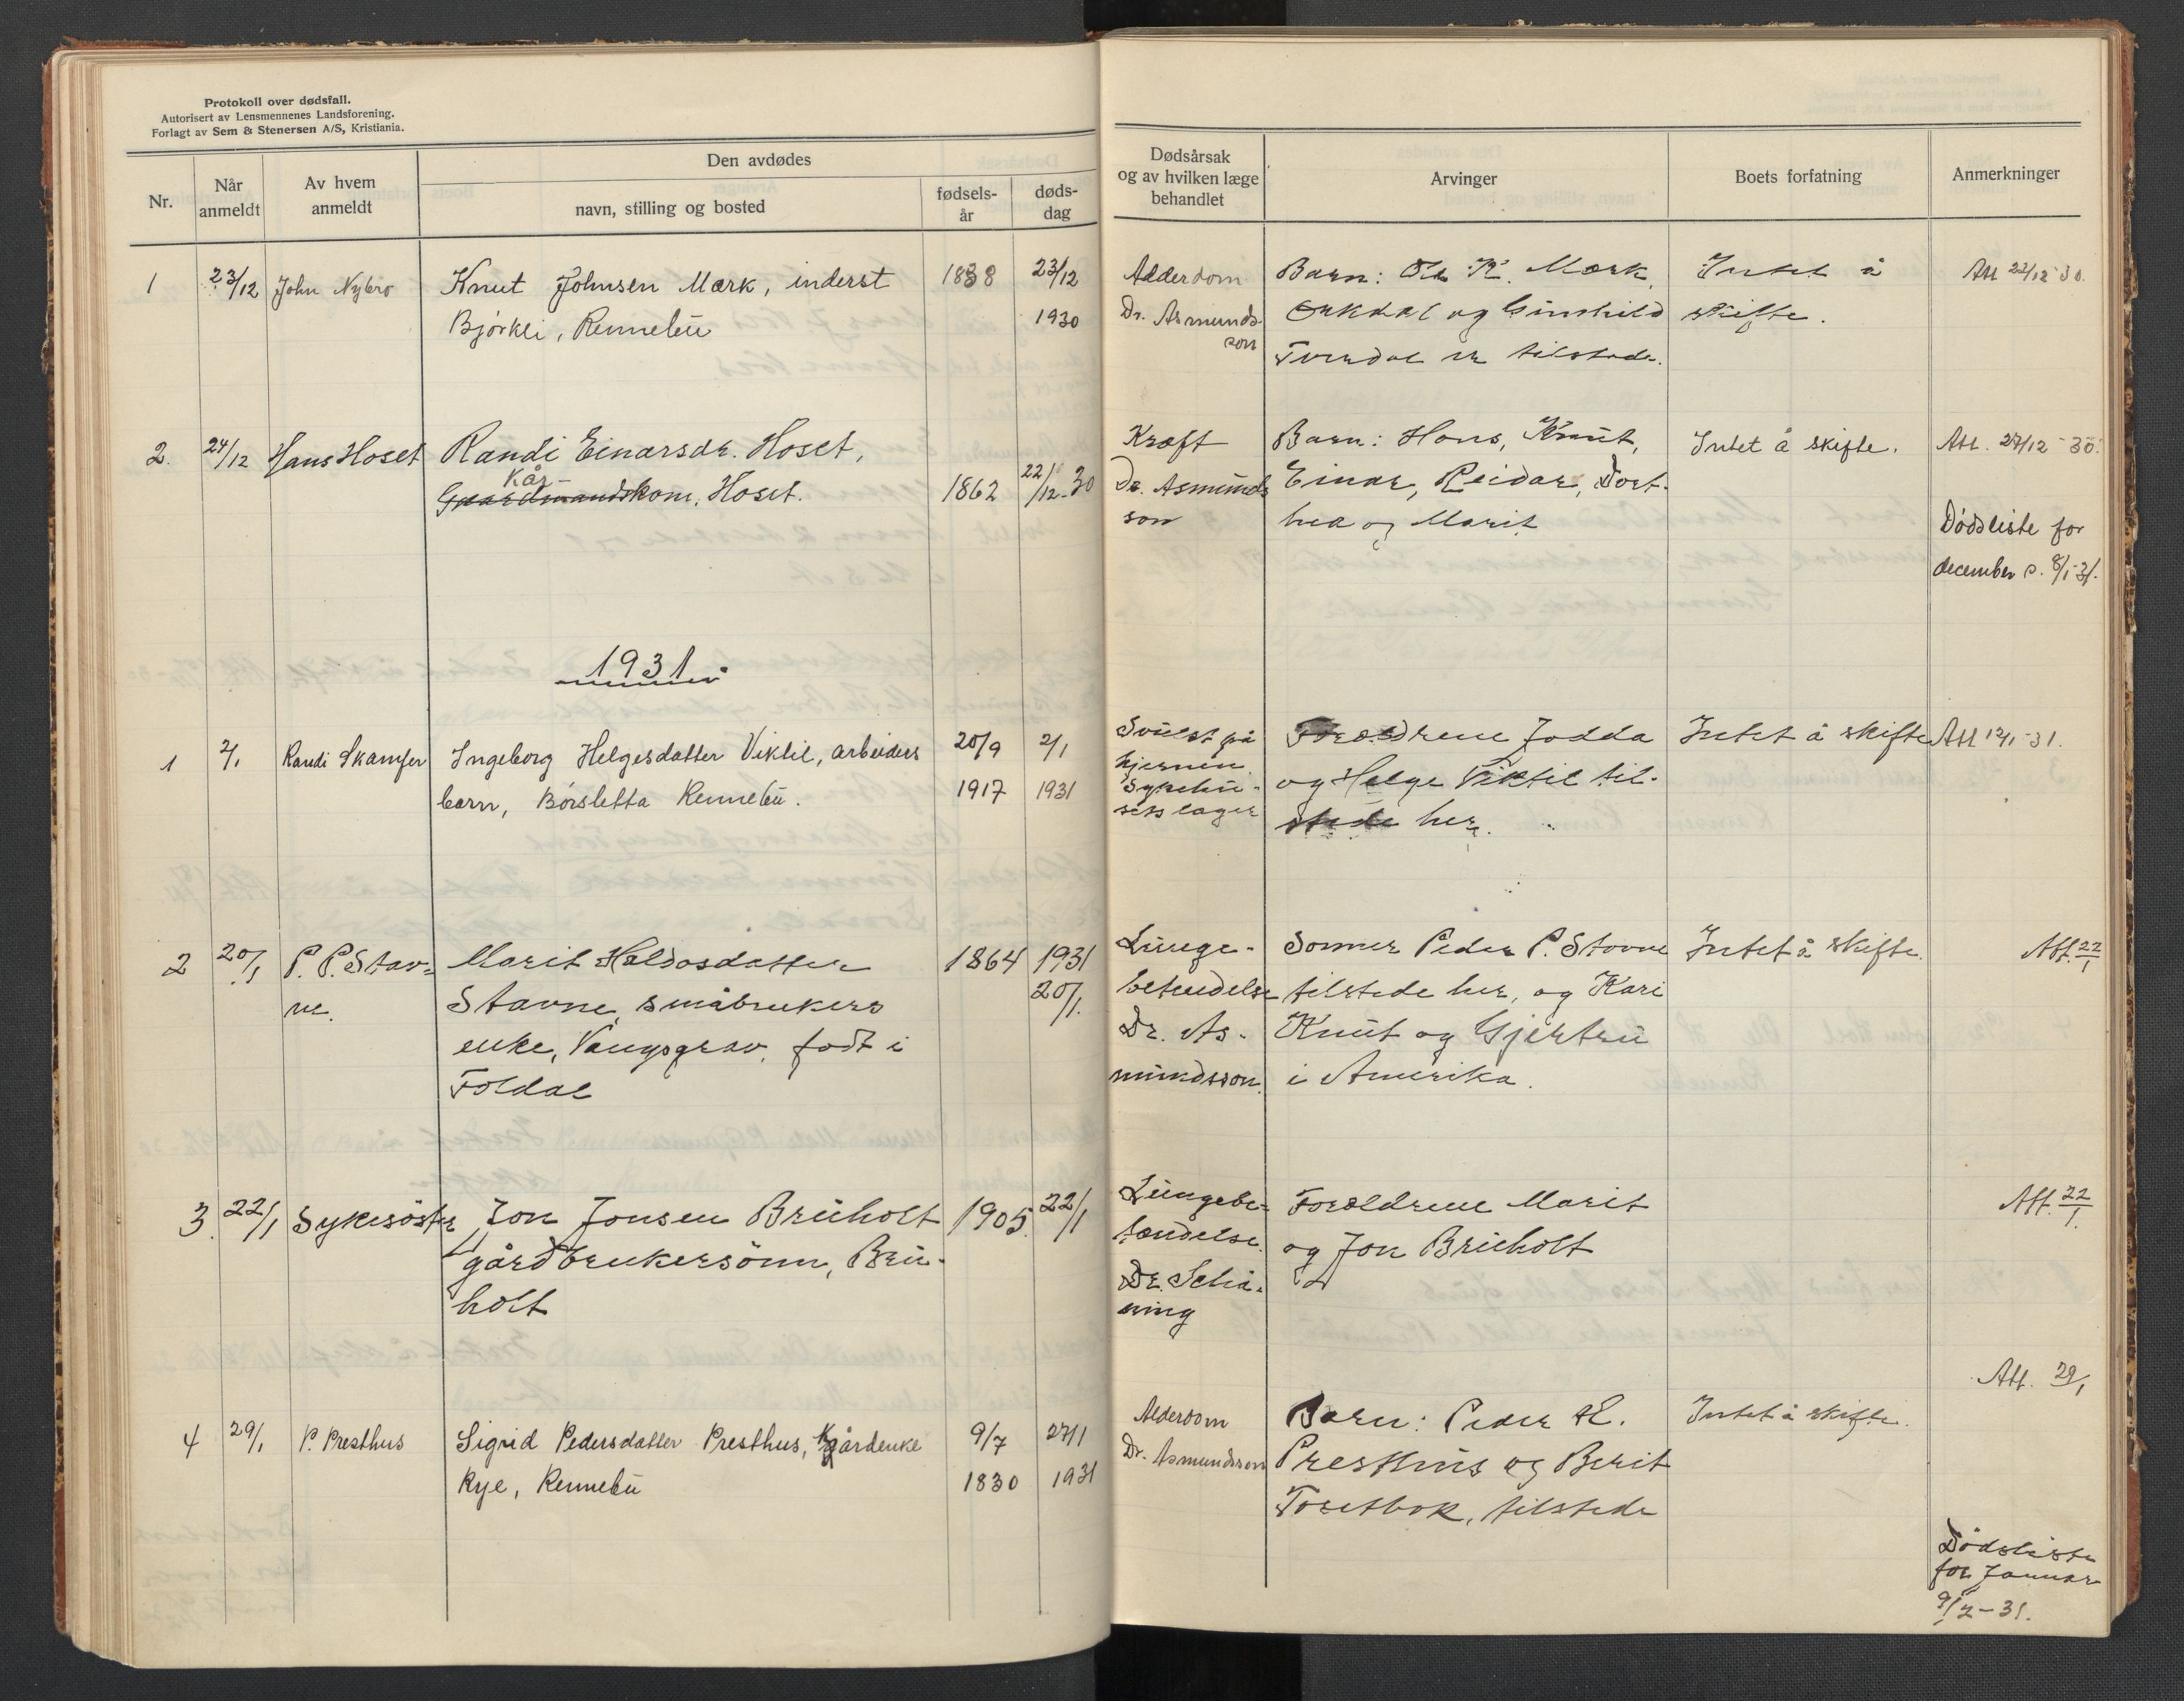 Protokoll over dødsfall.
Autorisert av Lensmennenes Landsforening.
Forlagt av Sem & Stenersen A/S, Kristiania.
Nr.
Når
anmeldt
Av hvem
anmeldt
Den avdødes
navn, stilling og bosted
fødsels-
år
døds-
dag
Dødsårsak
og av hvilken læge
behandlet
Arvinger
Boets forfatning
Anmerkninger
1
23/12
John Nybro
Knut Johnsen Mærk, inderst
Bjørkli, Rennebu
1838
23/12
1930
Alderdom
Dr. Asmunds-
son
Barn: Ole K. Mærk,
Orkdal og Gunhild
er tilstede.
Intet å
skifte.
Att 22/12 30.
2.
24/12
Hans Hoset
Randi Einarsdr. Hoset,
Kår-
Gaardmandskone, Hoset.
1862
22/12-30
Kræft
Dr. Asmunds
son
Barn: Hans, Knut,
Einar, Reidar, Dort-
hea og Marit
Intet å skifte.
Att. 24/12-30.
Dødsliste for
december s. 8/1-31.
1931
1
2/1
Randi Skamfer
Ingeborg Helgesdatter Viktil, arbeiders
barn, Børsletta Rennebu.
20/9
1917
2/1
1931
Svulst på
hjernen
Sykehu-
sets læger
Foreldrene Jodda
og Helge Viktil til-
stede her.
Intet å skifte
Att 12/1-31.
2
20/1
P. P. Stav-
ne.
Marit Haldosdatter
Stavne, småbrukers
enke, Vangsgrav, født i
Foldal
1864
1931
20/1.
Lunge-
betendelse
Dr. As-
mundsson
Sønner Peder P. Stavne
tilstede her, og Kari
Knut og Gjertru
i Amerika.
Intet å skifte.
Att. 22/1
3.
22/1
Sykesøster
Jon Jonsen Bruholt
gårdbrukersønn, Bru-
holt
1905.
22/1
Lungebe-
tændelse.
Dr. Schø-
ning
Foreldrene Marit
og Jon Bruholt
Att. 22/1.
4
29/1
P. Presthus
Sigrid Pedersdatter Presthus, kårdenke
Rye, Rennebu
9/7
1830
27/1
1931
Alderdom
Dr. Asmundsson
Barn: Peder H.
Presthus og Berit
tilstede
Intet å skifte.
Att. 29/1
Dødsliste
for Januar
9/2-31.